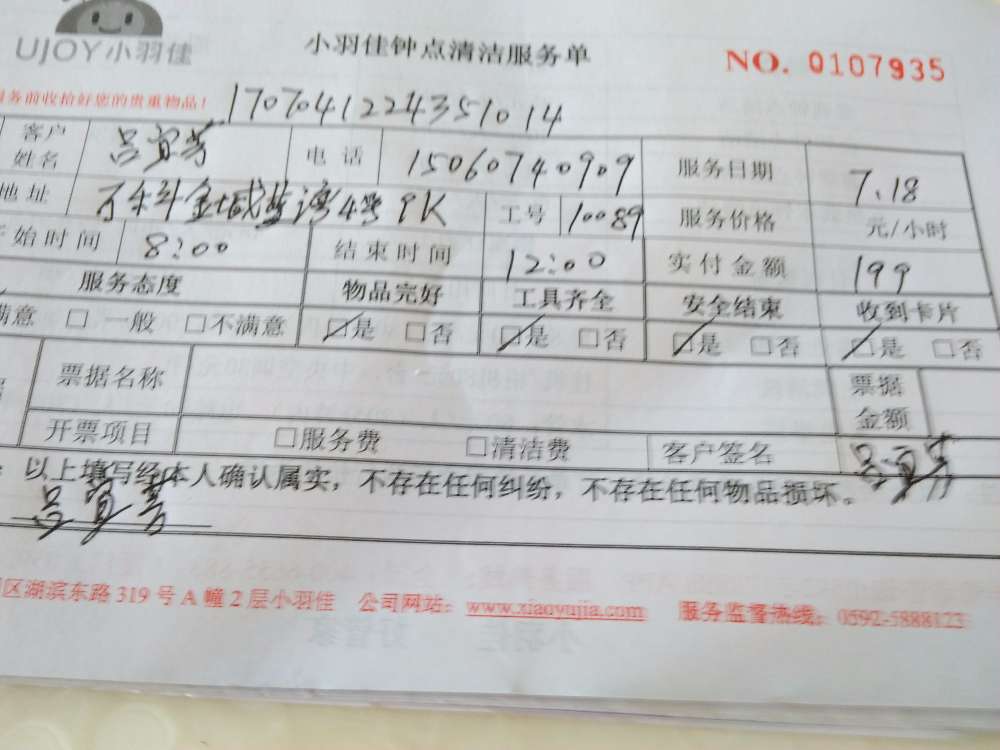 UJOY小羽佳
小羽佳钟点清洁服务单
NO. 0107935
务前收拾好您的贵重物品!
17070412243551014
客户姓名 吕宜芳 电话 15060740909 服务日期 7.18
地址 万科金域蓝湾4号9K 工号 10089 服务价格 元/小时
始时间 8:00 结束时间 12:00 实付金额 199
服务态度 物品完好 工具齐全 安全结束 收到卡片
满意 □ 一般 □不满意 ☑是 □否 ☑是 □否 ☑是 □否 ☑是 □否
票据名称 票据金额
开票项目 □服务费 □清洁费 客户签名 吕宜芳
以上填写经本人确认属实，不存在任何纠纷，不存在任何物品损坏。
吕宜芳
区湖滨东路 319 号 A 幢 2 层小羽佳 公司网站：www.xiaoyujia.com 服务监督热线：0592-5888123